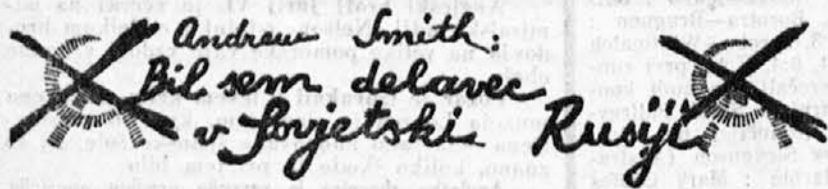 Andrew Smith:
Bil sem delavec
v Sovjetski Rusiji